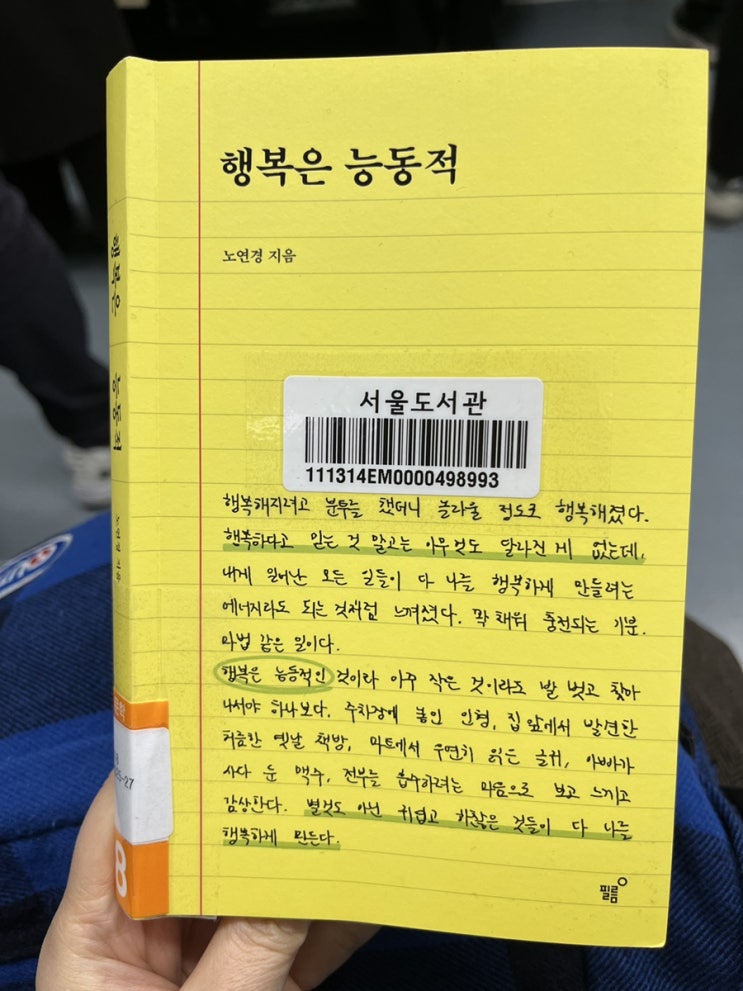 행복은 능동적
노연경 지음
서울도서관
111314EM0000498993
행복해지려고 분투를 했더니 놀라울 정도로 행복해졌다.
행복하다고 믿는 것 말고는 아무것도 달라진 게 없는데,
내게 일어난 모든 일들이 다 나를 행복하게 만들려는
에너지라도 되는 것처럼 느껴졌다. 꽉 채워 충전되는 기분.
마법 같은 일이다.
행복은 능동적인 것이라 아주 작은 것이라도 발 벗고 찾아
나서야 하나보다. 주차장에 놓인 인형, 집 앞에서 발견한
허름한 옛날 책방, 마트에서 우연히 읽은 글귀, 아빠가
사다 둔 맥주, 전부를 흡수하려는 마음으로 보고 느끼고
감상한다. 별것도 아닌 귀엽고 하찮은 것들이 다 나를
행복하게 만든다.
필름
행복은 능동적
노연경 지음
8